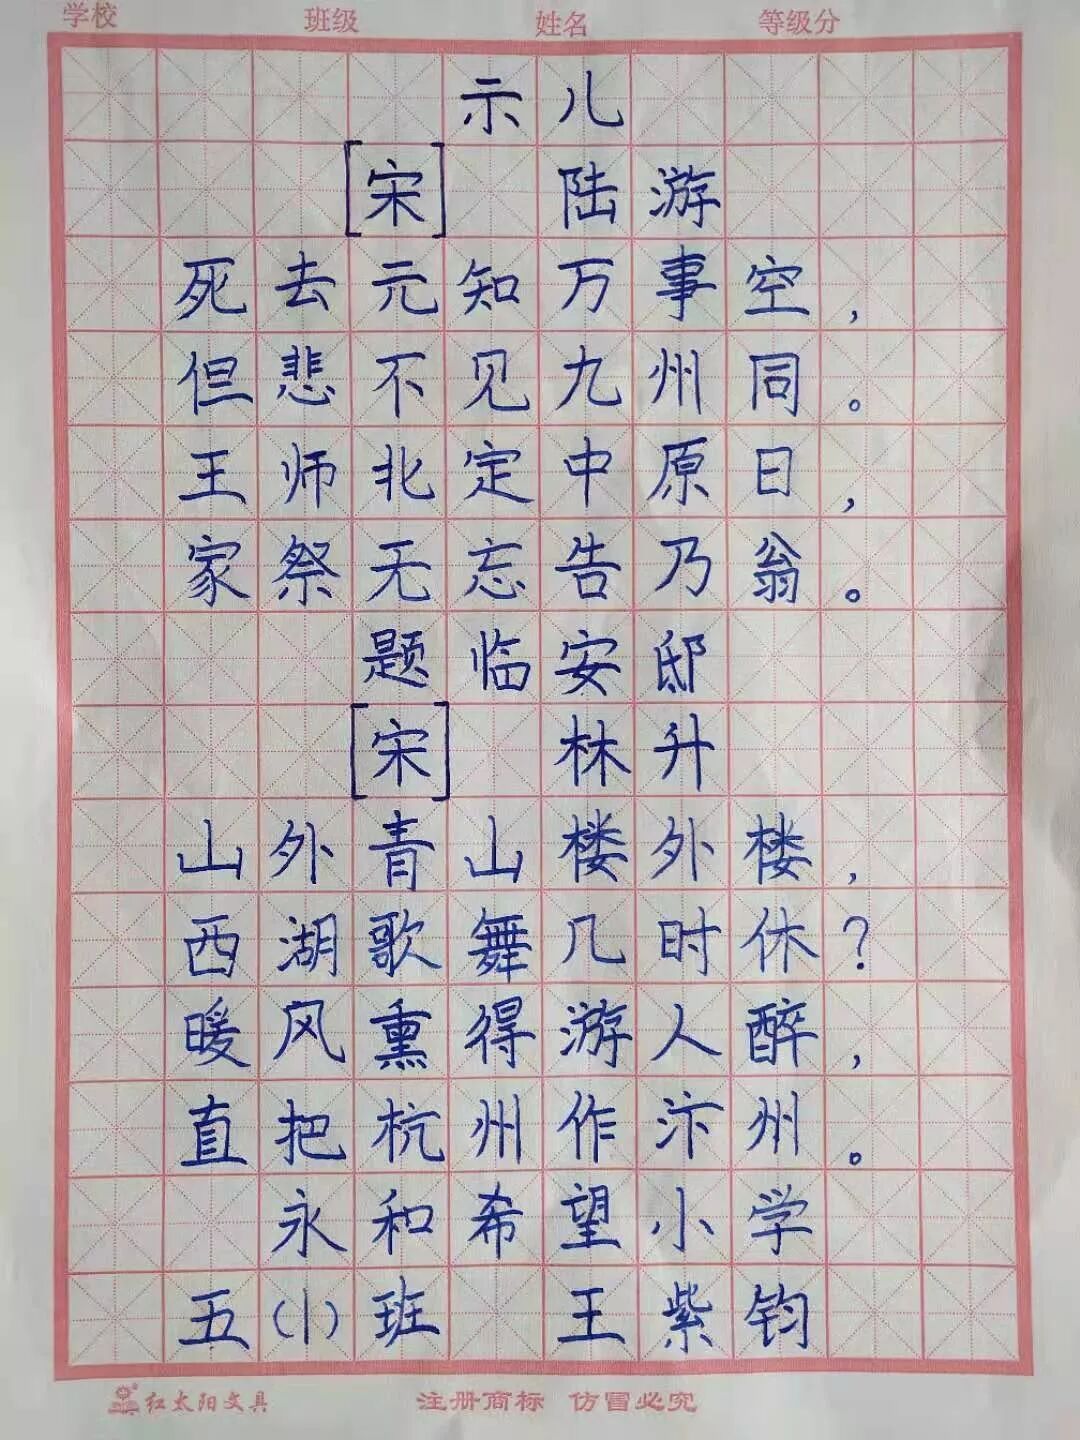 学校 班级 姓名 等级分
示儿
[宋] 陆游
死去元知万事空，
但悲不见九州同。
王师北定中原日，
家祭无忘告乃翁。
题临安邸
[宋] 林升
山外青山楼外楼，
西湖歌舞几时休？
暖风熏得游人醉，
直把杭州作汴州。
永和希望小学
五(1)班 王紫钧
红太阳文具 注册商标 仿冒必究